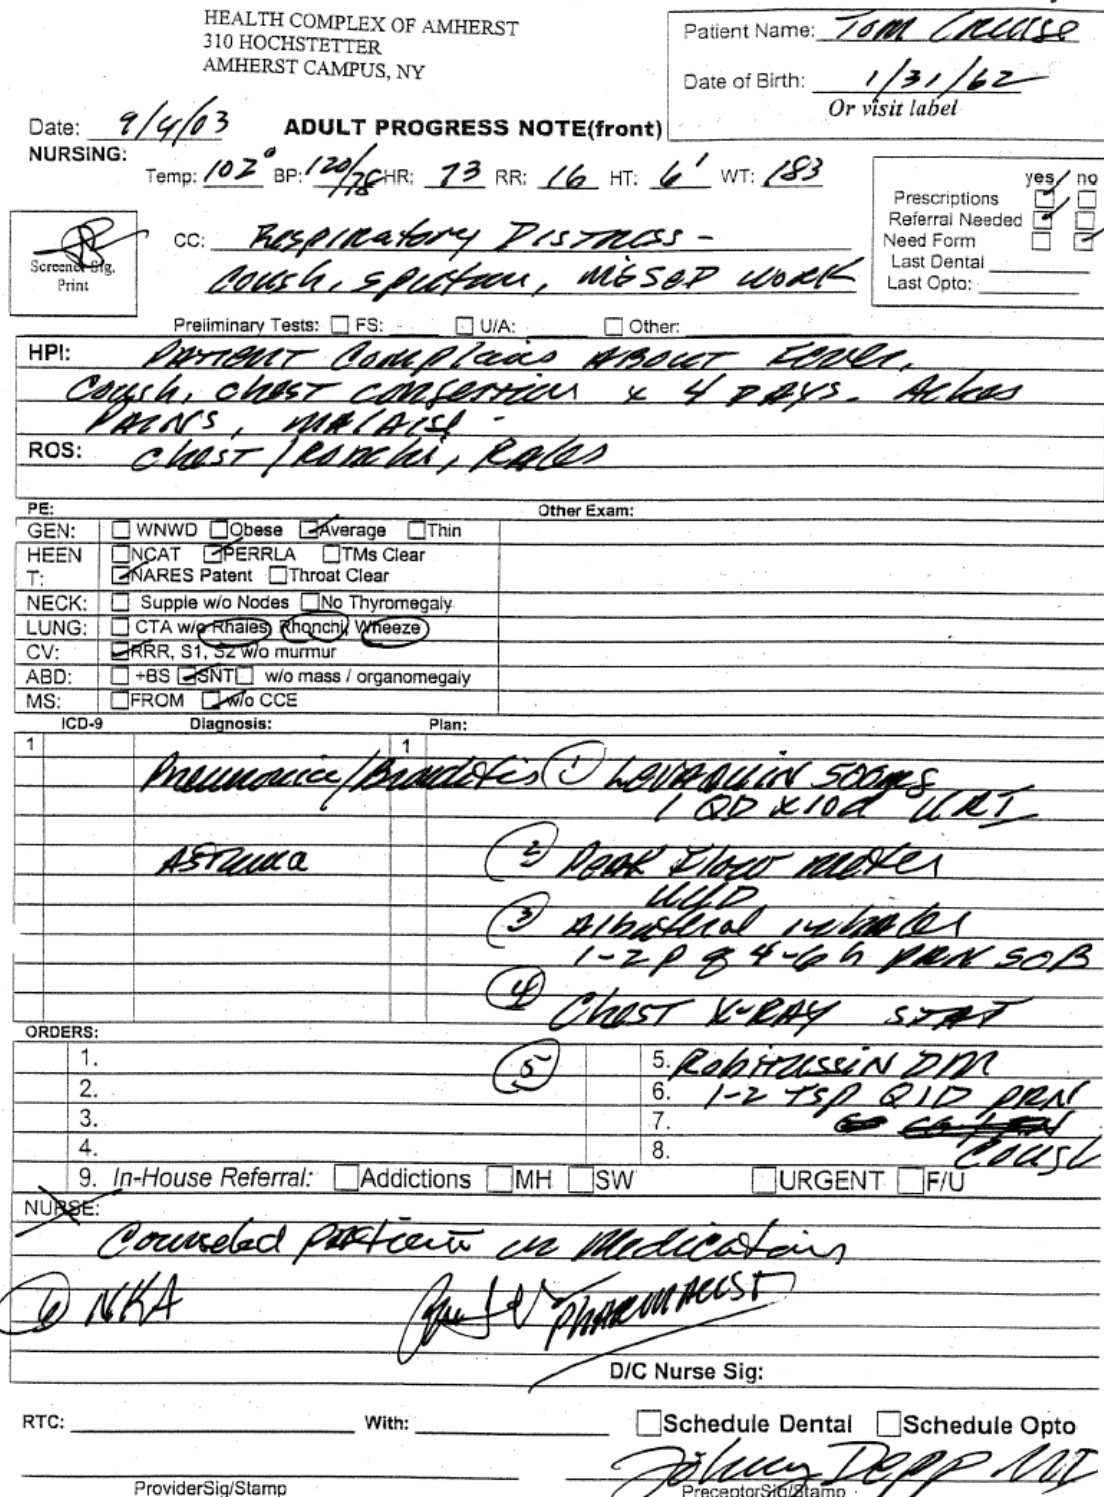 HEALTH COMPLEX OF AMHERST
310 HOCHSTETTER
AMHERST CAMPUS, NY
Patient Name: Tom Cruise
Date of Birth: 1/31/62
Or visit label
Date: 9/4/03 ADULT PROGRESS NOTE(front)
NURSING:
Temp: 102° BP: 120/78 HR: 73 RR: 16 HT: 6' WT: 183
yes no
Prescriptions
Referral Needed
Need Form
Last Dental
Last Opto:
Screener Sig.
Print
CC: Respiratory Distress -
Cough, sputum, missed work
Preliminary Tests: FS: U/A: Other:
HPI: Patient Complains About Fever,
Cough, chest congestion x 4 days. Aches
Pains, malaise -
ROS: Chest / Ronchi, Rales
PE: Other Exam:
GEN: WNWD Obese Average Thin
HEEN NCAT PERRLA TMs Clear
T: NARES Patent Throat Clear
NECK: Supple w/o Nodes No Thyromegaly
LUNG: CTA w/o Rhales, Rhonchi, Wheeze
CV: RRR, S1, S2 w/o murmur
ABD: +BS SNT w/o mass / organomegaly
MS: FROM w/o CCE
ICD-9 Diagnosis: Plan:
1 1
Pneumonia/ 1 Levaquin 500mg
1 QD x10d URI
Asthma 2 Peak Flow meter
UUD
3 Albuterol inhaler
1-2 p q 4-6 h PRN SOB
4 Chest X-RAY STAT
ORDERS:
1. 5 5. Robitussin DM
2. 6. 1-2 tsp QID PRN
3. 7.
4. 8. Cough
9. In-House Referral: Addictions MH SW URGENT F/U
NURSE:
Counseled patient on Medications
6 NKA PHARMACIST
D/C Nurse Sig:
RTC: With: Schedule Dental Schedule Opto
Johnny Depp MD
ProviderSig/Stamp PreceptorSig/Stamp